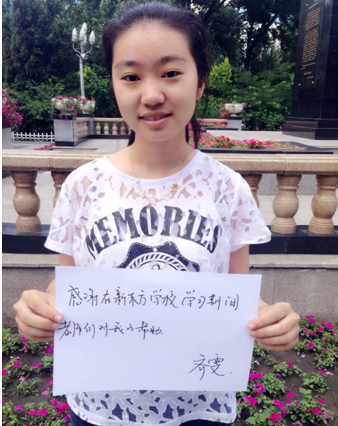 MEMORIES
感谢在新东方学校学习期间
老师们对我的帮助.
齐雯.